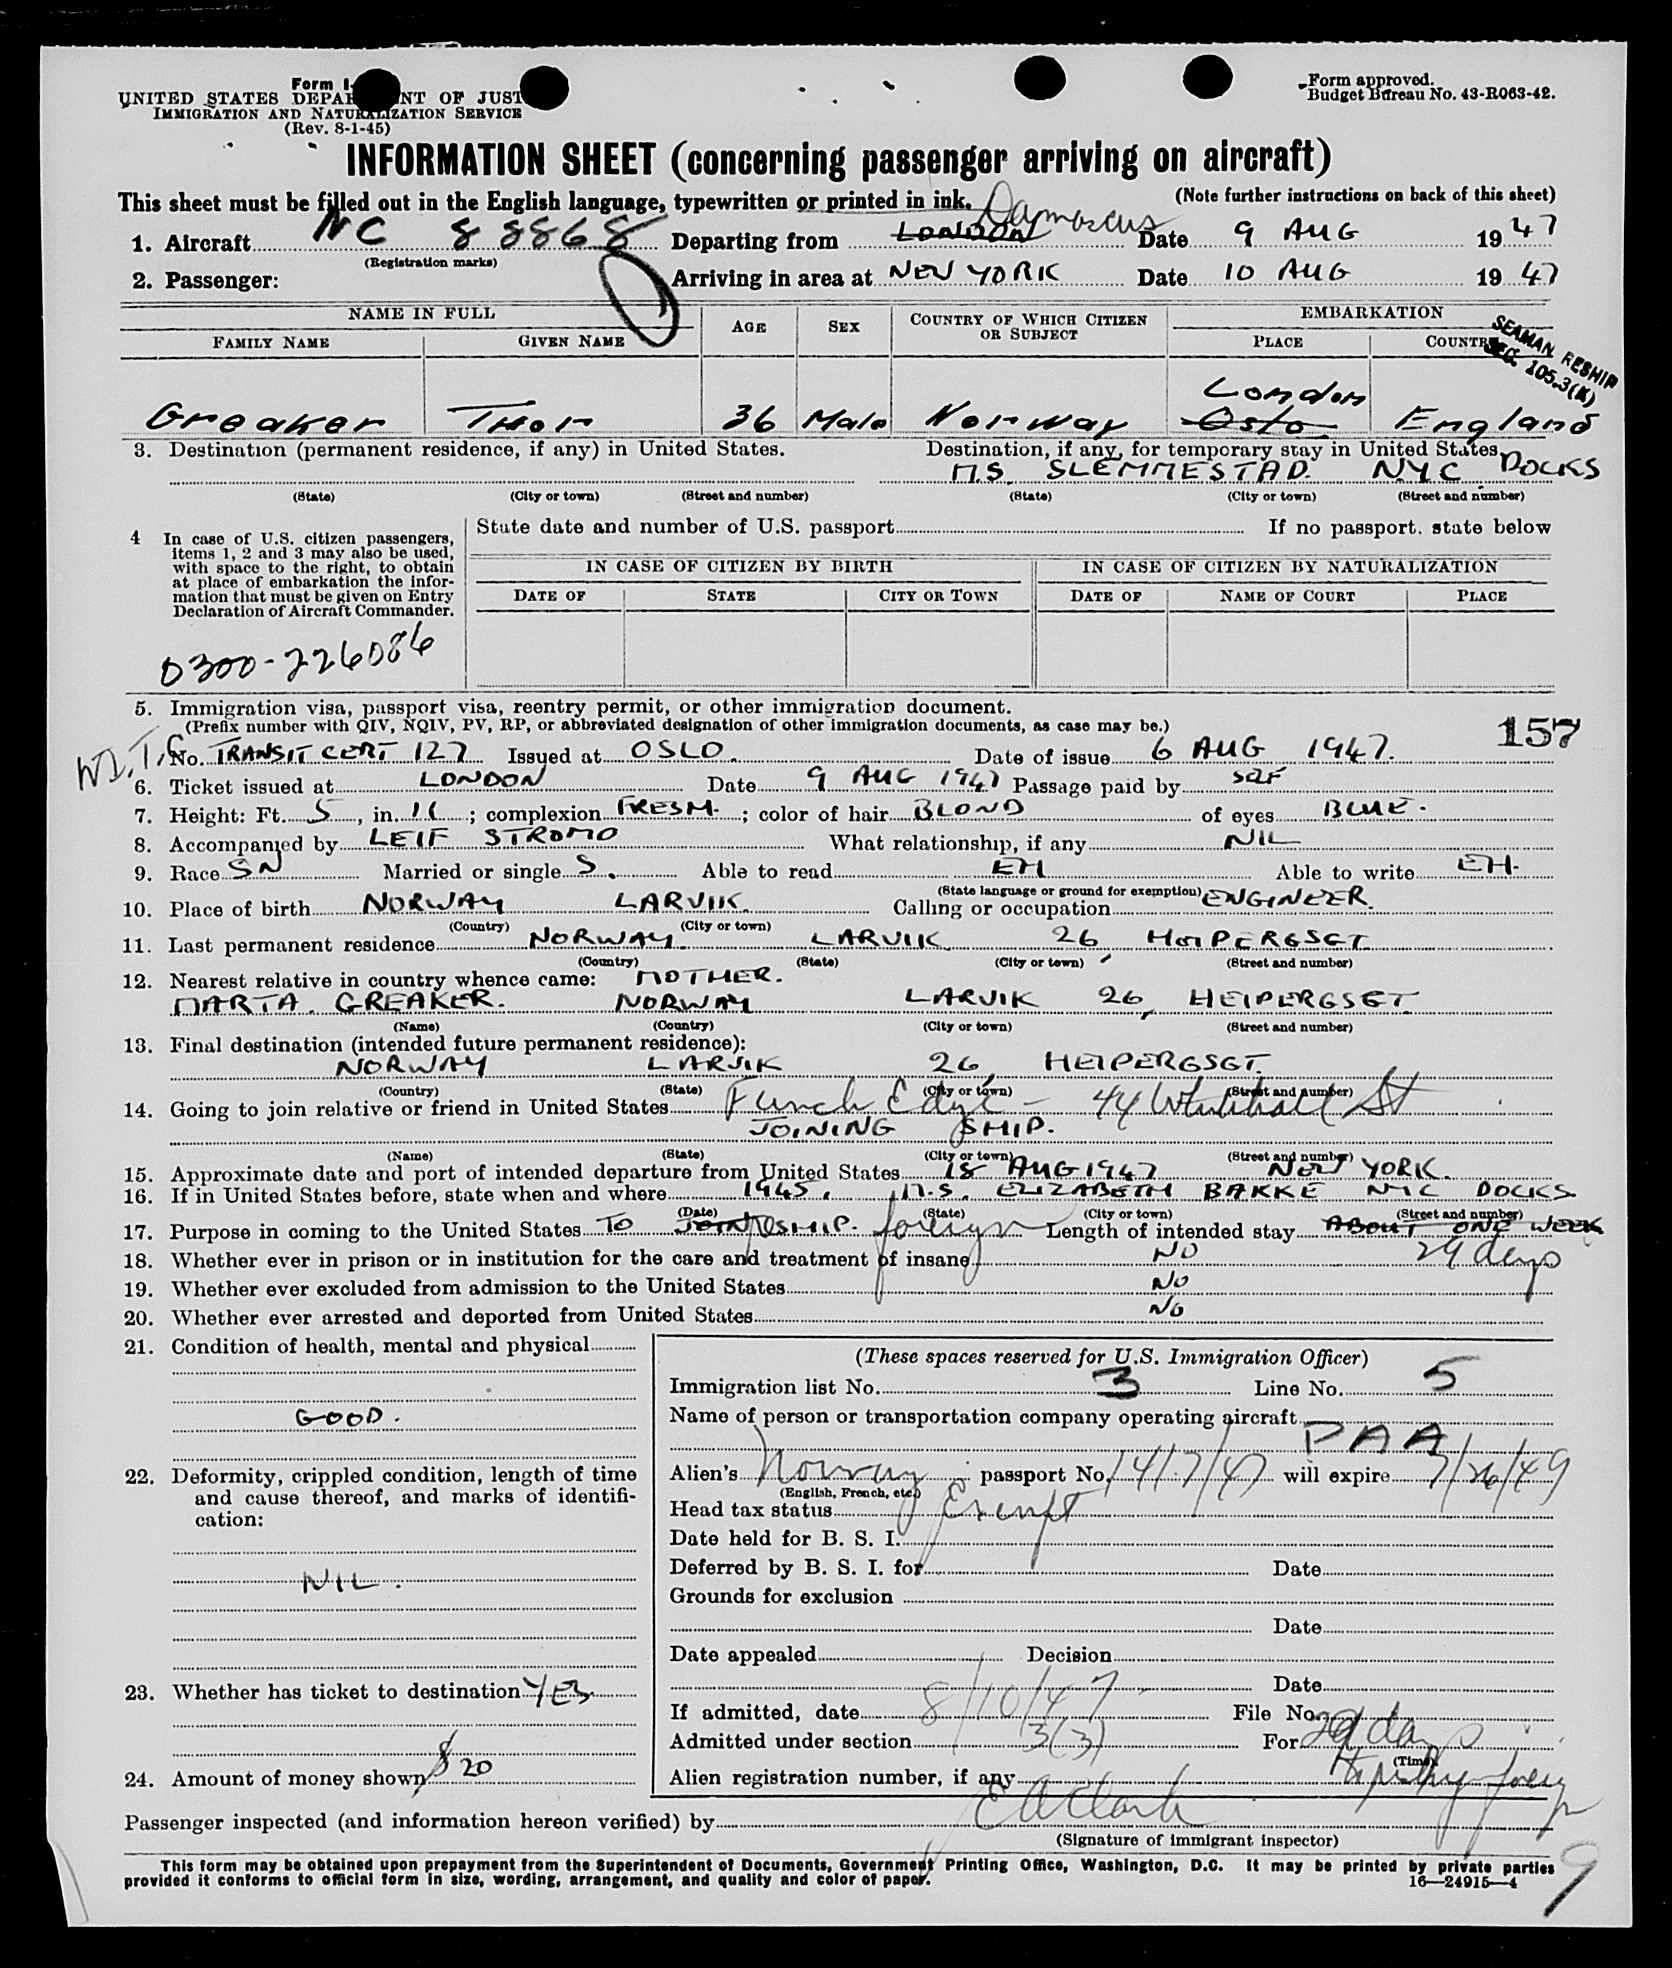 Form I-
UNITED STATES DEPAR NT OF JUST
IMMIGRATION AND NATURALIZATION SERVICE
(Rev. 8-1-45)
Form approved.
Budget Bureau No. 43-R063-42.
INFORMATION SHEET (concerning passenger arriving on aircraft)
This sheet must be filled out in the English language, typewritten or printed in ink. (Note further instructions on back of this sheet)
1. Aircraft NC 88868 Departing from LONDON Damascus Date 9 AUG 1947
(Registration marks)
2. Passenger: Arriving in area at NEW YORK Date 10 AUG 1947
NAME IN FULL AGE SEX COUNTRY OF WHICH CITIZEN OR SUBJECT EMBARKATION
FAMILY NAME GIVEN NAME PLACE COUNTRY
SEAMAN RESHIP
SEC. 105.3(K)
London
Greaker Thor 36 Male Norway Oslo England
3. Destination (permanent residence, if any) in United States. Destination, if any, for temporary stay in United States.
M.S. SLEMMESTAD. NYC DOCKS
(State) (City or town) (Street and number) (State) (City or town) (Street and number)
4 In case of U.S. citizen passengers, items 1, 2 and 3 may also be used, with space to the right, to obtain at place of embarkation the information that must be given on Entry Declaration of Aircraft Commander.
State date and number of U.S. passport If no passport, state below
IN CASE OF CITIZEN BY BIRTH IN CASE OF CITIZEN BY NATURALIZATION
DATE OF STATE CITY OR TOWN DATE OF NAME OF COURT PLACE
0300-226086
5. Immigration visa, passport visa, reentry permit, or other immigration document.
(Prefix number with QIV, NQIV, PV, RP, or abbreviated designation of other immigration documents, as case may be.)
157
No. TRANSIT CERT 127 Issued at OSLO. Date of issue 6 AUG 1947.
6. Ticket issued at LONDON Date 9 AUG 1947 Passage paid by
7. Height: Ft. 5, in. 11; complexion FRESH.; color of hair BLOND of eyes BLUE.
8. Accompanied by LEIF STROMO What relationship, if any NIL
9. Race SN Married or single S. Able to read EH Able to write EH.
(State language or ground for exemption)
10. Place of birth NORWAY LARVIK. Calling or occupation ENGINEER.
(Country) (City or town)
11. Last permanent residence NORWAY. LARVIK 26, HEIPERGSGT
(Country) (State) (City or town) (Street and number)
12. Nearest relative in country whence came: MOTHER.
MARTA. GREAKER. NORWAY LARVIK 26, HEIPERGSGT
(Name) (Country) (City or town) (Street and number)
13. Final destination (intended future permanent residence):
NORWAY LARVIK 26, HEIPERGSGT.
(Country) (State) (City or town) (Street and number)
14. Going to join relative or friend in United States Funch Edye - 44 Whitehall St
JOINING SHIP.
(Name) (State) (City or town) (Street and number)
15. Approximate date and port of intended departure from United States 18 AUG 1947 NEW YORK.
16. If in United States before, state when and where 1945, M.S. ELIZABETH BAKKE NYC DOCKS.
(Date) (State) (City or town) (Street and number)
17. Purpose in coming to the United States TO JOIN RESHIP. foreign Length of intended stay ABOUT ONE WEEK
29 days
18. Whether ever in prison or in institution for the care and treatment of insane NO
19. Whether ever excluded from admission to the United States NO
20. Whether ever arrested and deported from United States NO
21. Condition of health, mental and physical
GOOD.
22. Deformity, crippled condition, length of time and cause thereof, and marks of identification:
NIL.
23. Whether has ticket to destination YES
24. Amount of money shown $20
(These spaces reserved for U.S. Immigration Officer)
Immigration list No. 3 Line No. 5
Name of person or transportation company operating aircraft
PAA
Alien's Norway passport No. 1417/47 will expire 7/26/49
(English, French, etc.)
Head tax status Exempt
Date held for B. S. I.
Deferred by B. S. I. for Date
Grounds for exclusion
Date
Date appealed Decision
Date
If admitted, date 8/10/47 File No.
Admitted under section 3(3) For 29 days
(Time)
Alien registration number, if any
Passenger inspected (and information hereon verified) by E A Clark
(Signature of immigrant inspector)
This form may be obtained upon prepayment from the Superintendent of Documents, Government Printing Office, Washington, D.C. It may be printed by private parties
provided it conforms to official form in size, wording, arrangement, and quality and color of paper. 16—24915—4
9